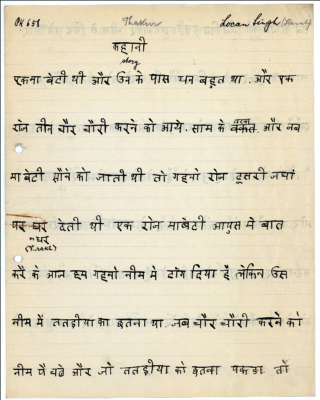 PK 658 Thakur Locan Singh
कहानी
story
एकमा बेटी थी और उन के पास धन बहुत था. और एक
रोज तीन चौर चौरी करने को आये. साम के वकत. और जब
मा बेटी सौने को जाती थी तो गहनो रोज दूसरी जघां
पर धर देती थी एक रोज माबेटी आपुस मे बात
धर
करै के आज हम गहनो नीम मे टांग दिया है लेकिन उस
नीम में ततइीया का छतना था. जब चौर चौरी करने को
नीम पै चढे और जो ततइीया को छतना पकडा तो